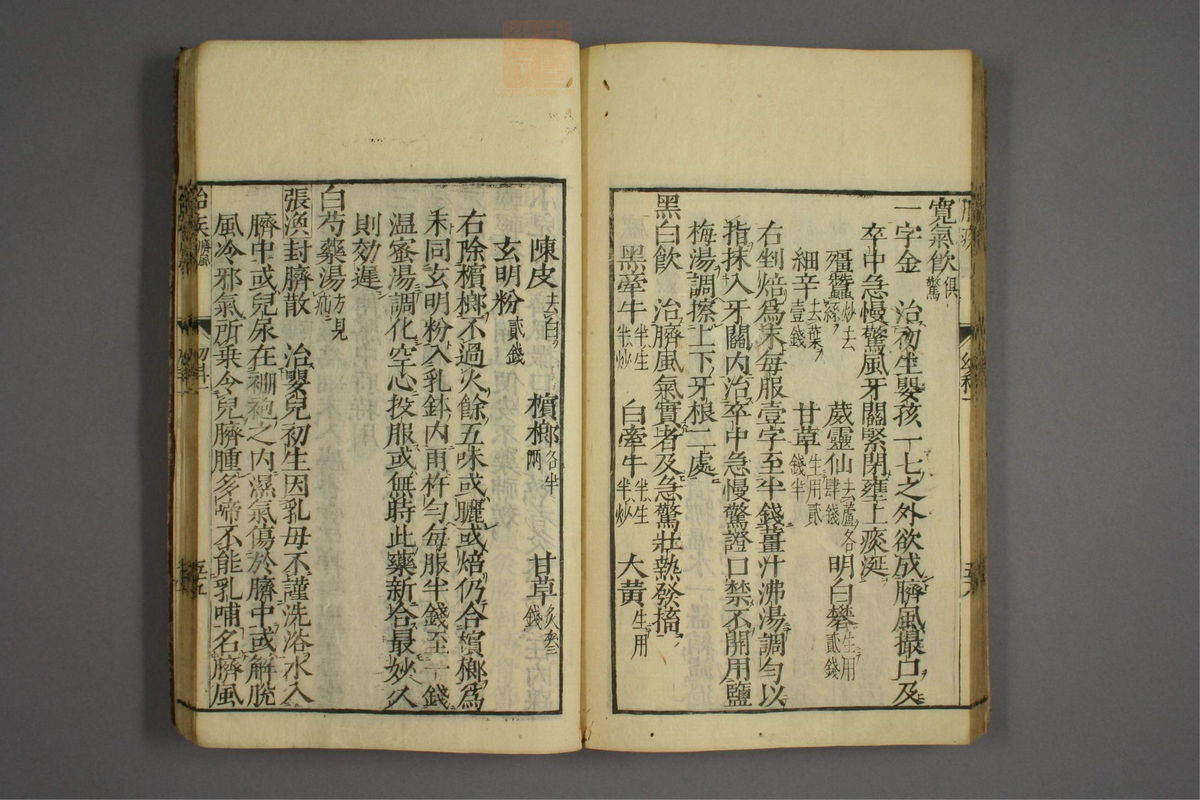 寛氣飲 驚俱
一字金 治初生嬰孩一七之外欲成臍風撮口及
卒中急慢驚風牙關緊閉壅上痰涎
殭蠶炒去絲 葳靈仙去蘆各肆錢 明白礬生用貳錢
細辛去葉壹錢 甘草生用貳錢半
右剉焙爲末毎服壹字至半錢薑汁沸湯調勻以
指抹入牙關内治卒中急慢驚證口禁不開用鹽
梅湯調擦上下牙根二處
黑白飲 治臍風氣實者及急驚壯熱發搐
黑牽牛半生半炒 白牽牛半生半炒 大黄生用
陳皮去白 檳榔各半兩 甘草炙參錢
玄明粉貳錢
右除檳榔不過火餘五味或䐿或焙仍合檳榔爲
末同玄明粉入乳鉢内再杵勻毎服半錢至一錢
温蜜湯調化空心投服或無時此藥新合最妙久
則効遅
白芍藥湯方見
張渙封臍散 治嬰兒初生因乳母不謹洗浴水入
臍中或兒尿在襁袍之内濕氣傷於臍中或解脱
風冷邪氣所乗令兒臍腫多啼不能乳哺名臍風